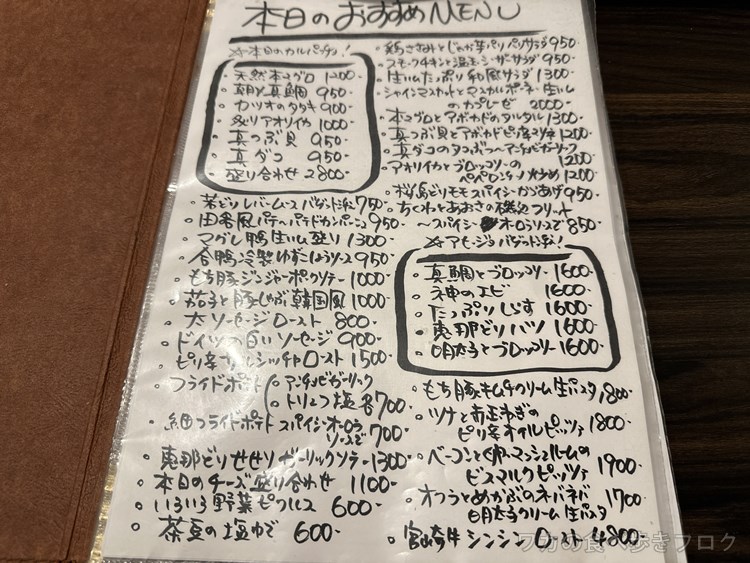 本日のおすすめMENU
☆本日のカルパッチョ!
・天然本マグロ 1200-
・真鯛 950-
・カツオのタタキ 900-
・炙りアオリイカ 1000-
・真つぶ貝 950-
・真ダコ 950-
・盛り合わせ 2800-
・若どりレバームース バゲット添 750-
・田舎風パテ〜パテドカンパーニュ 950-
・マグレ鴨生ハム盛り 1300-
・合鴨冷製ゆずこしょうソース 950-
・もち豚ジンジャーポークソテー 1000-
・茄子と豚しゃぶ韓国風 1000-
・大ソーセージロースト 800-
・ドイツの白いソーセージ 900-
・ピリ辛サルシッチャロースト 1500
・フライドポテト
・アンチョビガーリック
・トリュフ塩 各700-
・細フライドポテト スパイシーオーロラ
ソースで 700-
・恵那どりせせりガーリックソテー 1300-
・本日のチーズ盛り合わせ 1100-
・いろいろ野菜ピクルス 600-
・茶豆の塩ゆで 600-
・鶏ささみとじゃが芋パリパリサラダ 950-
・スモークチキンと温玉シーザーサラダ 950-
・生ハムたっぷり和風サラダ 1300-
・シャインマスカットとマスカルポーネ・生ハム
のカプレーゼ 2000-
・本マグロとアボカドのタルタル 1300-
・真つぶ貝とアボカドピリ辛マリネ 1200-
・真ダコのタコぶつ〜アンチョビガーリック
1200-
・アオリイカとブロッコリーの
ペペロンチーノ炒め 1200-
・桜島どりモモスパイシーからあげ 950-
・ちくわとあおさの磯辺フリット
〜スパイシーオーロラソースで 850-
☆アヒージョバゲット添!
・真鯛とブロッコリー 1600-
・神のエビ 1600-
・たっぷりしらす 1600-
・恵那どりハツ 1600-
・明太子とブロッコリー 1600-
・もち豚キムチクリーム生パスタ 1800-
・ツナと赤玉ねぎの
ピリ辛オイルピッツァ 1800-
・ベーコンとマッシュルームの
ビスマルクピッツァ 1900
・オクラとめかぶのネバネバ
明太子クリーム生パスタ 1700
・宮崎牛シンシンロースト 4800-
フカの食べ歩きブログ